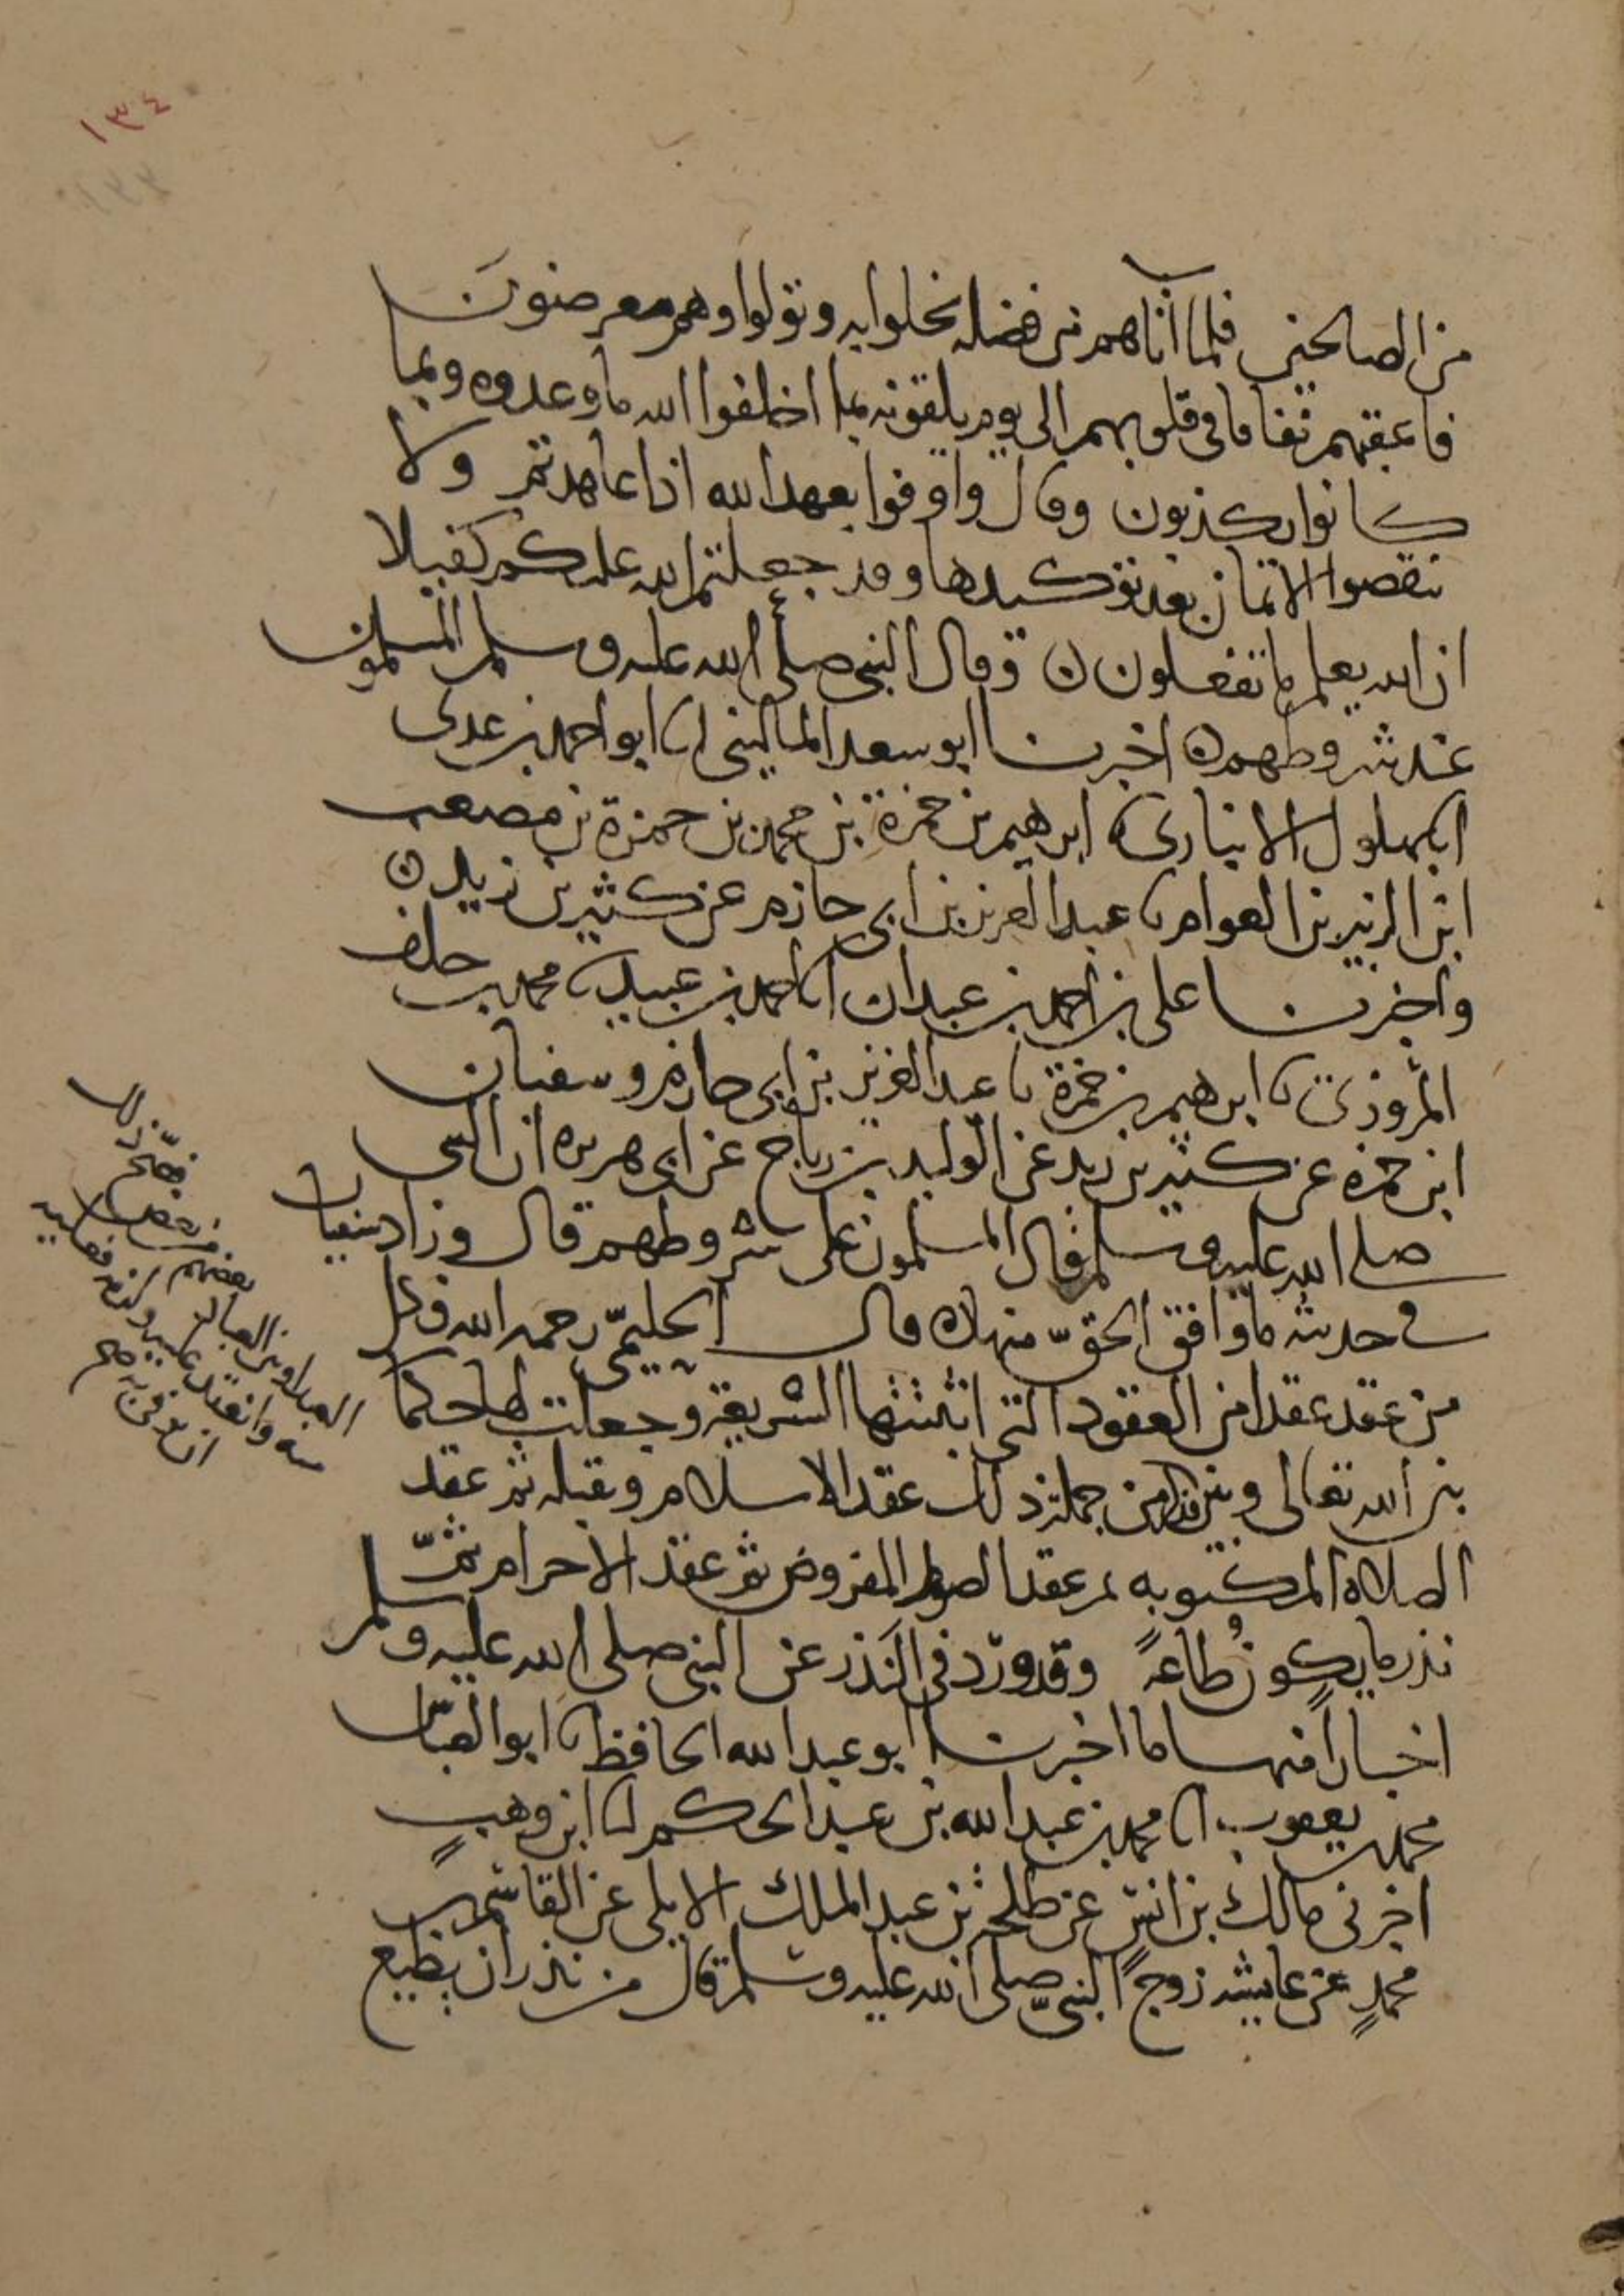 ١٣٤
من الصالحين فلما اتاهم من فضله بخلوا به وتولوا وهم معرضون
فاعقبهم نفاقا في قلوبهم الى يوم يلقونه بما اخلفوا الله ما وعدوه وبما
كانوا يكذبون وقال واوفوا بعهد الله اذا عاهدتم ولا
تنقضوا الايمان بعد توكيدها وقد جعلتم الله عليكم كفيلا
ان الله يعلم ما تفعلون وقال النبي صلى الله عليه وسلم المسلمون
عند شروطهم اخبرنا ابو سعد الماليني انا ابو احمد بن عدى
البهلول الانباري ابرهيم بن حمزة بن محمد بن حمزة بن مصعب
ابن الزبير بن العوام نا عبد العزيز بن ابي حازم عن كثير بن زيد
واخبرنا على بن احمد بن عبدان انا احمد بن عبيد نا محمد بن خلف
المروزي نا ابرهيم بن حمزة نا عبد العزيز بن ابي حازم وسفيان
ابن حمزه عن كثير بن زيد عن الوليد بن رباح عن ابي هريره ان النبي
صلى الله عليه وسلم قال المسلمون على شروطهم قال وزاد سفيان
في حديثه ما وافق الحق منها قال الحليمي رحمه الله فكل
من عقد عقدا من العقود التي اثبتتها الشريعة وجعلت لها حكما
بين الله تعالى وبين من جملة ذلك عقد الاسلام وتقبله ثم عقد
الصلاة المكتوبه ثم عقد الصوم المفروض ثم عقد الاحرام ثم
نذر ما يكون طاعة وقد ورد في النذر عن النبي صلى الله عليه وسلم
اخبار منها ما اخبرنا ابو عبد الله الحافظ نا ابو العباس
محمد بن يعقوب انا محمد بن عبد الله بن عبد الحكم انا ابن وهب
اخبرني مالك بن انس عن طلحة بن عبد الملك الايلي عن القاسم بن
محمد عن عايشة زوج النبي صلى الله عليه وسلم قال من نذر ان يطيع
فصح ذلك
العباد وبين العباد بعضهم من بعض
وانعقد عليه ولزمه فعليه
ان يوفى به صح